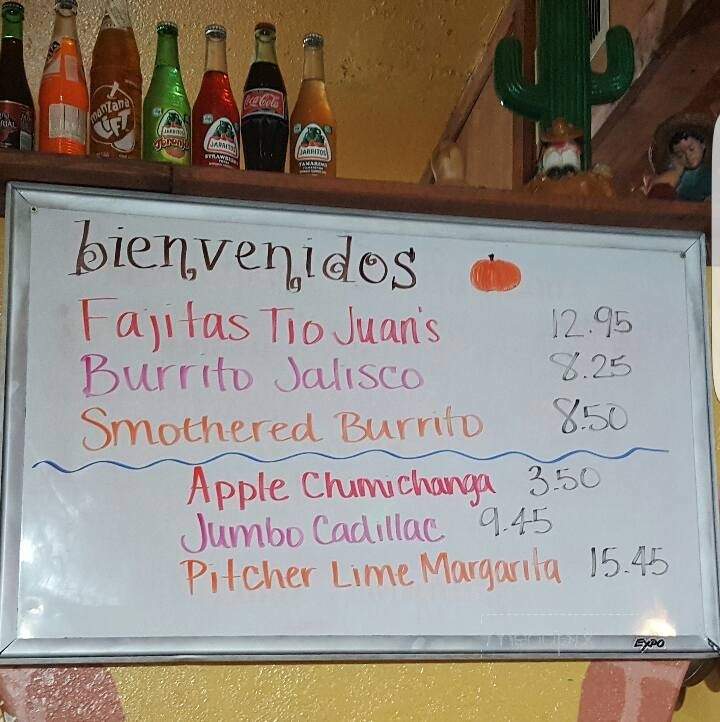 manzana
LIFT
JARRITOS
JARRITOS
STRAWBERRY
Coca-Cola
JARRITOS
TAMARIND
bienvenidos
Fajitas Tio Juan's 12.95
Burrito Jalisco 8.25
Smothered Burrito 8.50
Apple Chimichanga 3.50
Jumbo Cadillac 9.45
Pitcher Lime Margarita 15.45
menupix
EXPO